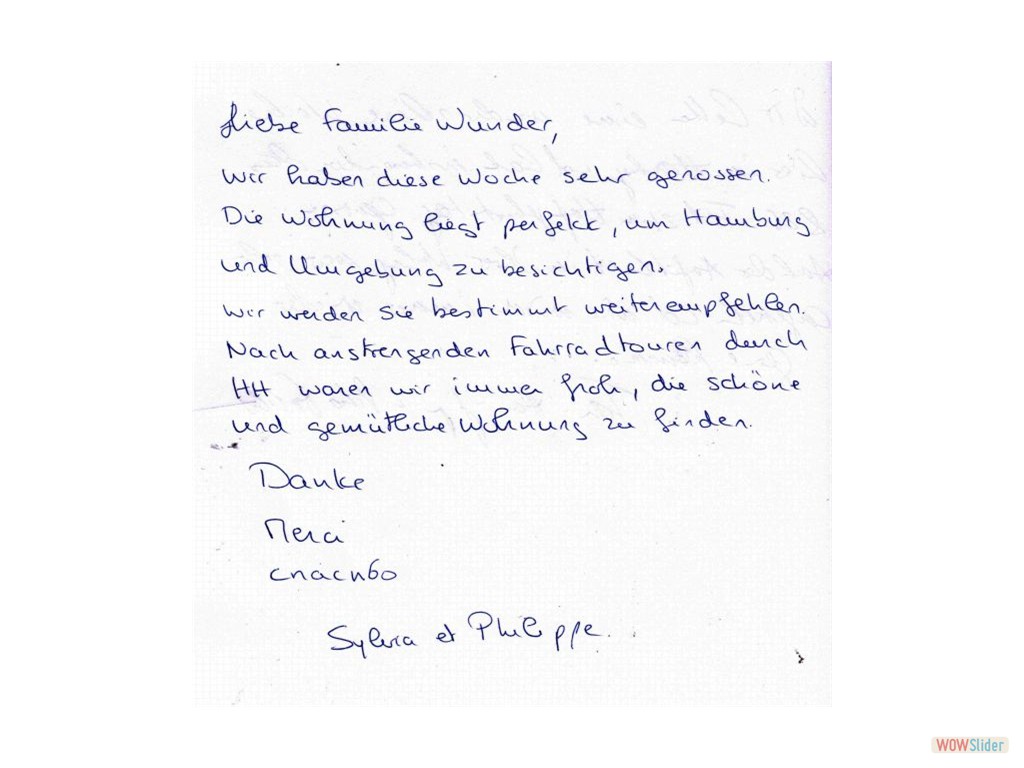 Liebe Familie Wunder,
wir haben diese Woche sehr genossen.
Die Wohnung liegt perfekt, um Hamburg
und Umgebung zu besichtigen.
Wir werden sie bestimmt weiterempfehlen.
Nach anstrengenden Fahrradtouren durch
HH waren wir immer froh, die schöne
und gemütliche Wohnung zu finden.
Danke
Merci
спасибо
Sylvia et Philippe.
WOWSlider